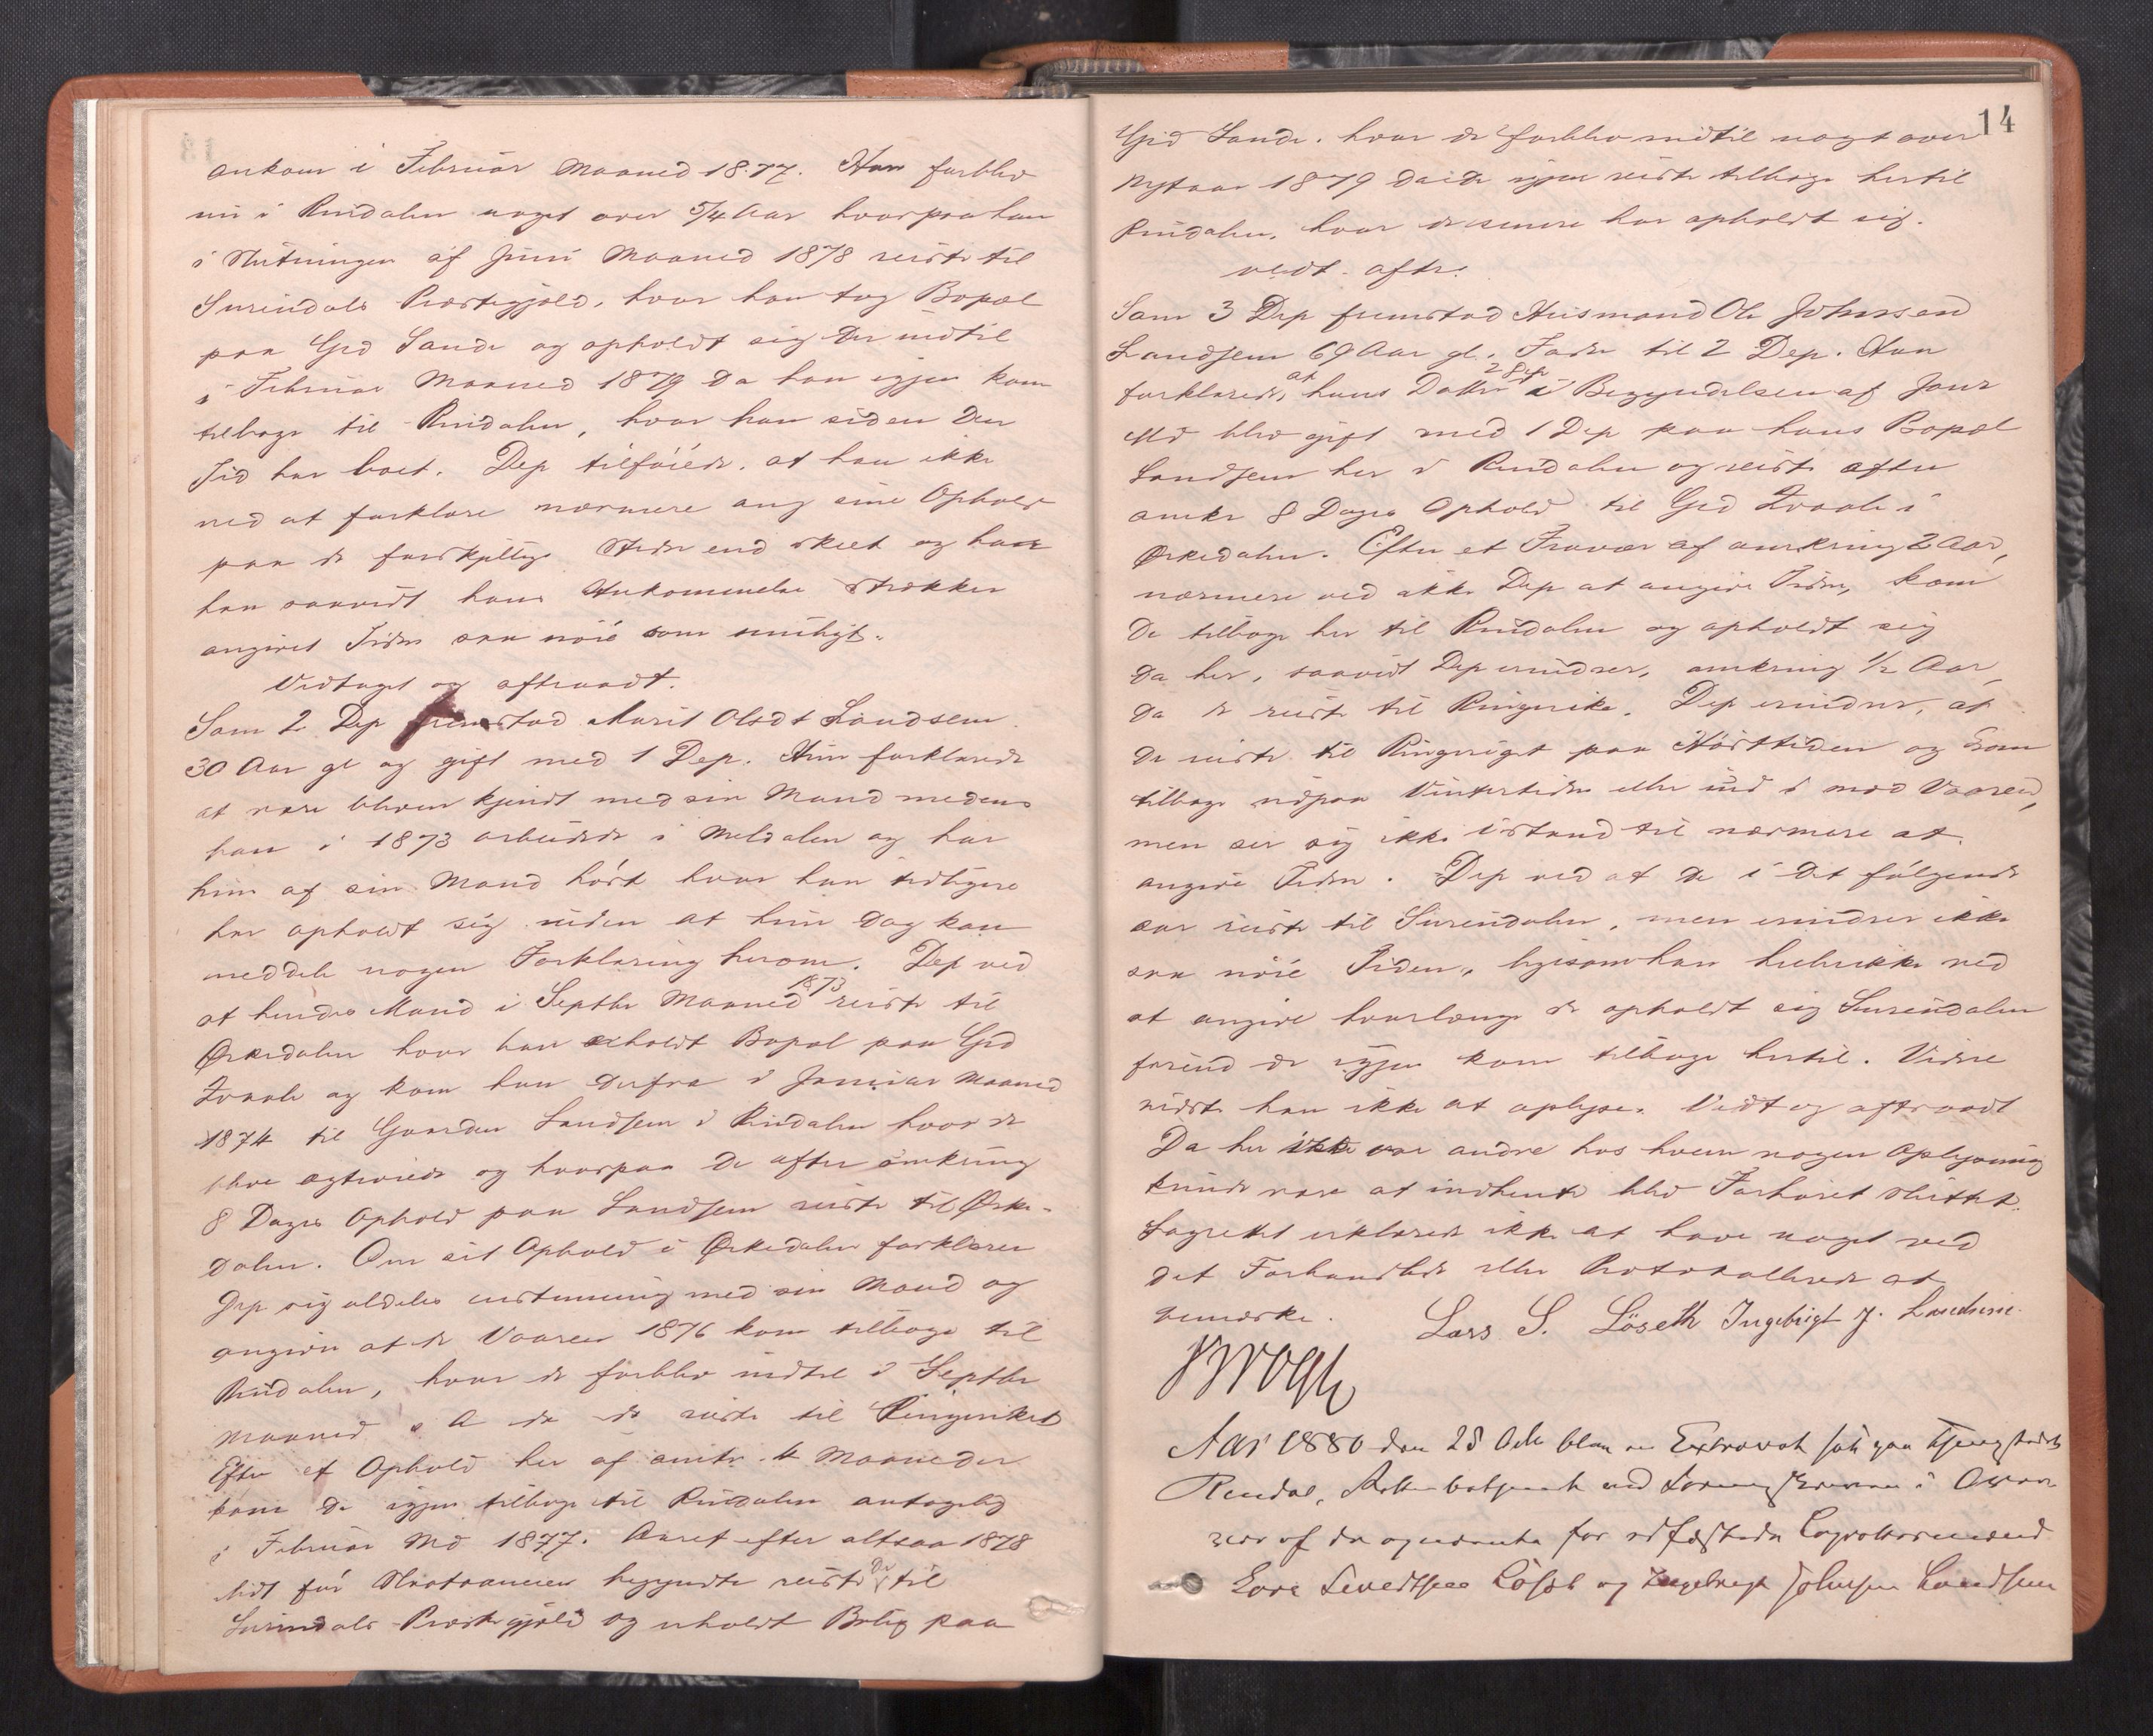 ankom i Februar Maaned 1877. Han forblev
nu i Rindalen noget over 5/4 Aar hvorpaa han
i Slutningen af Juni Maaned 1878 reiste til
Surendals Præstegjæld, hvor han tog Bopæl
paa Grd Sande og opholdt sig der indtil
i Februar Maaned 1879 da han igjen kom
tilbage til Rindalen, hvor han siden den
Tid har boet. Dep tilföiede, at han ikke
ved at forklare nærmere ang sine Ophold
paa de forskjellige Steder end skeet og har
han saavidt hans Hukommelse strækker
angivet Tiden saa nöie som muligt.
Vedtaget og aftraadt.
Som 2 Dep fremstod Marit Olsdt Landsem
30 Aar gl og gift med 1 Dep. Hun forklarede
at være bleven kjendt med sin Mand medens
han i 1873 arbeidede i Meldalen og har
hun af sin Mand hört hvor han tidligere
har opholdt sig uden at hun dog kan
meddele nogen Forklaring herom. Dep ved
at hendes Mand i Septbr Maaned 1873 reiste til
Ørkedalen hvor han erholdt Bopæl paa Grd
og kom han derfra i Januar Maaned
1874 til Gaarden Landsem i Rindalen hvor de
blev ægteviede og hvorpaa de efter omkring
8 Dages Ophold paa Landsem reiste til Ørke-
dalen. Om sit Ophold i Ørkedalen forklarer
Dep sig aldeles enstemmig med sin Mand og
angiver at de Vaaren 1876 kom tilbage til
Rindalen, hvor de forblev indtil i Septbr
Maaned s A da de reiste til Ringeriket
Efter et Ophold her af omtr. 4 Maaneder
kom de igjen tilbage til Rindalen antagelig
i Februar Md 1877. Aaret efter altsaa 1878
lidt för Slaataannen begyndte reiste De til
Surendals Præstegjæld og erholdt Bolig paa
14
Grd Sande, hvor de forblev indtil noget over
Nytaar 1879 da de igjen reiste tilbage hertil
Rindalen, hvor de senere har opholdt sig.
vedt. aftr.
Som 3 Dep fremstod Husmand Ole Johnsen
Landsem 69 Aar gl. Fader til 2 Dep. Han
forklarede, at hans Datter 2 Dep i Begyndelsen af Janr
Md blev gift med 1 Dep paa hans Bopæl
Landsem her i Rindalen og reiste efter
omkr 8 Dages Ophold til Grd i
Ørkedalen. Efter et Fravær af omkring 2 Aar,
nærmere ved ikke Dep at angive Tiden, kom
De tilbage her til Rindalen og opholdt sig
da her, saavidt Dep erindrer, omkring 1/2 Aar,
da de reiste til Ringerike. Dep erindrer, at
De reiste til Ringeriget paa Hösttiden og kom
tilbage udpaa Vintertiden eller ind i mod Vaaren,
men ser sig ikke istand til nærmere at
angive Tiden. Dep ved at de i det fölgende
aar reiste til Surendalen, men erindrer ikke
saa nöie Tiden, ligesom han heller ikke ved
at angive hvorlænge de opholdt sig Surendalen
forend de igjen kom tilbage hertil. Videre
vidste han ikke at oplyse. Vedt og aftraadt
Da her ikke var andre hos hvem nogen Oplysning
kunde være at indhente blev Forhöret sluttet.
Lagrettet erklærede ikke at have noget ved
det Forhandlede eller Protokollerede at
bemærke. Lars S. Löseth Ingebrigt J. Landsem.
Aar 1880 den 28 Oct blev en Extraret sat paa Thingstedet
Rindal, Retten betjent ved i
af den og for Lagrettesmænd
Lars Sivertsen Löset og Ingebrigt Johnsen Landsem